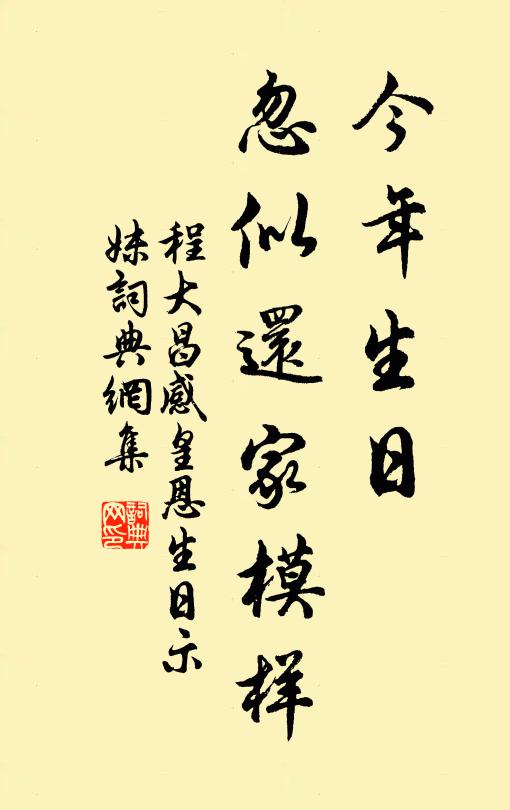 今年生日
忽似還家模样
程大昌感皇恩生日示
妹詞典網集
詞典
网印